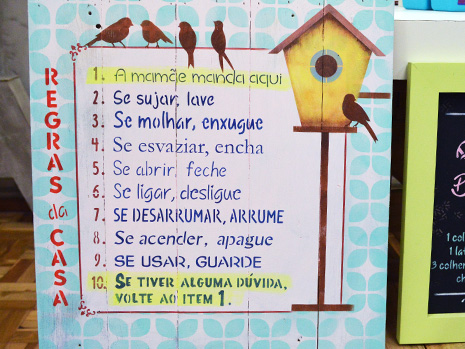 REGRAS da CASA
1. A mamãe manda aqui
2. Se sujar, lave
3. Se molhar, enxugue
4. Se esvaziar, encha
5. Se abrir, feche
6. Se ligar, desligue
7. SE DESARRUMAR, ARRUME
8. Se acender, apague
9. SE USAR, GUARDE
10. SE TIVER ALGUMA DÚVIDA,
VOLTE AO ITEM 1.
1 col
1 la
3 colher